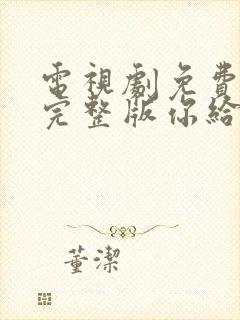 電視劇免費
完整版你給
董潔